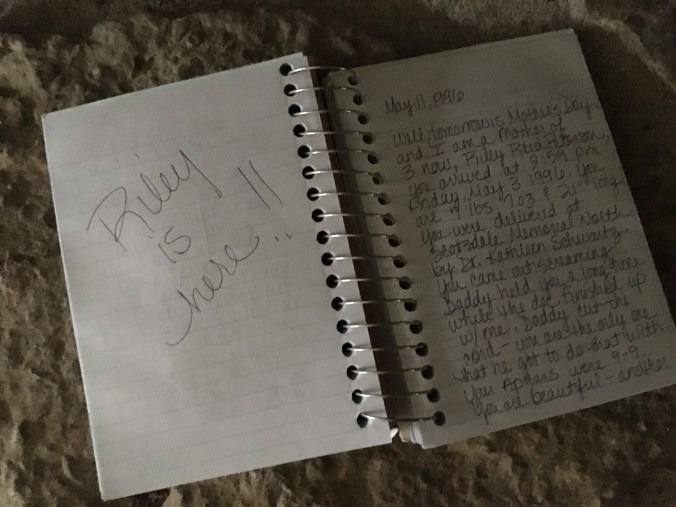 Riley
is
here!!
May 11, 1996
Well, tomorrow is Mother's Day
and I am a mother of
3 now. Riley Reed Peterson,
you arrived at 9:59 pm
Friday, May 3 1996. You
are 9 lbs 7 oz & 21" long.
You were delivered at
Scottsdale Memorial North
by Dr. Kathleen Schwartz.
You came out screaming.
Daddy held you a long time
while the doc finished up
w/ me. Daddy cut the
cord - you are the only one
that he got to do that with.
Your Apgars were 9-9.
You are beautiful - another